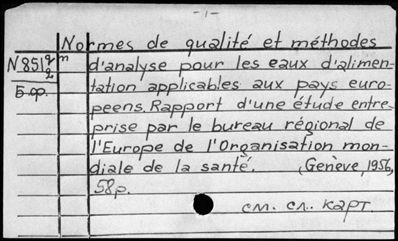 - 1 -
Normes de qualité et méthodes
N 851 9/2 m d'analyse pour les eaux d'alimen-
Б. ор. tation applicables aux pays euro-
peens. Rapport d'une étude entre-
prise par le bureau régional de
l'Europe de l'Organisation mon-
diale de la santé. (Genève, 1956,
58p.
см. сл. карт.